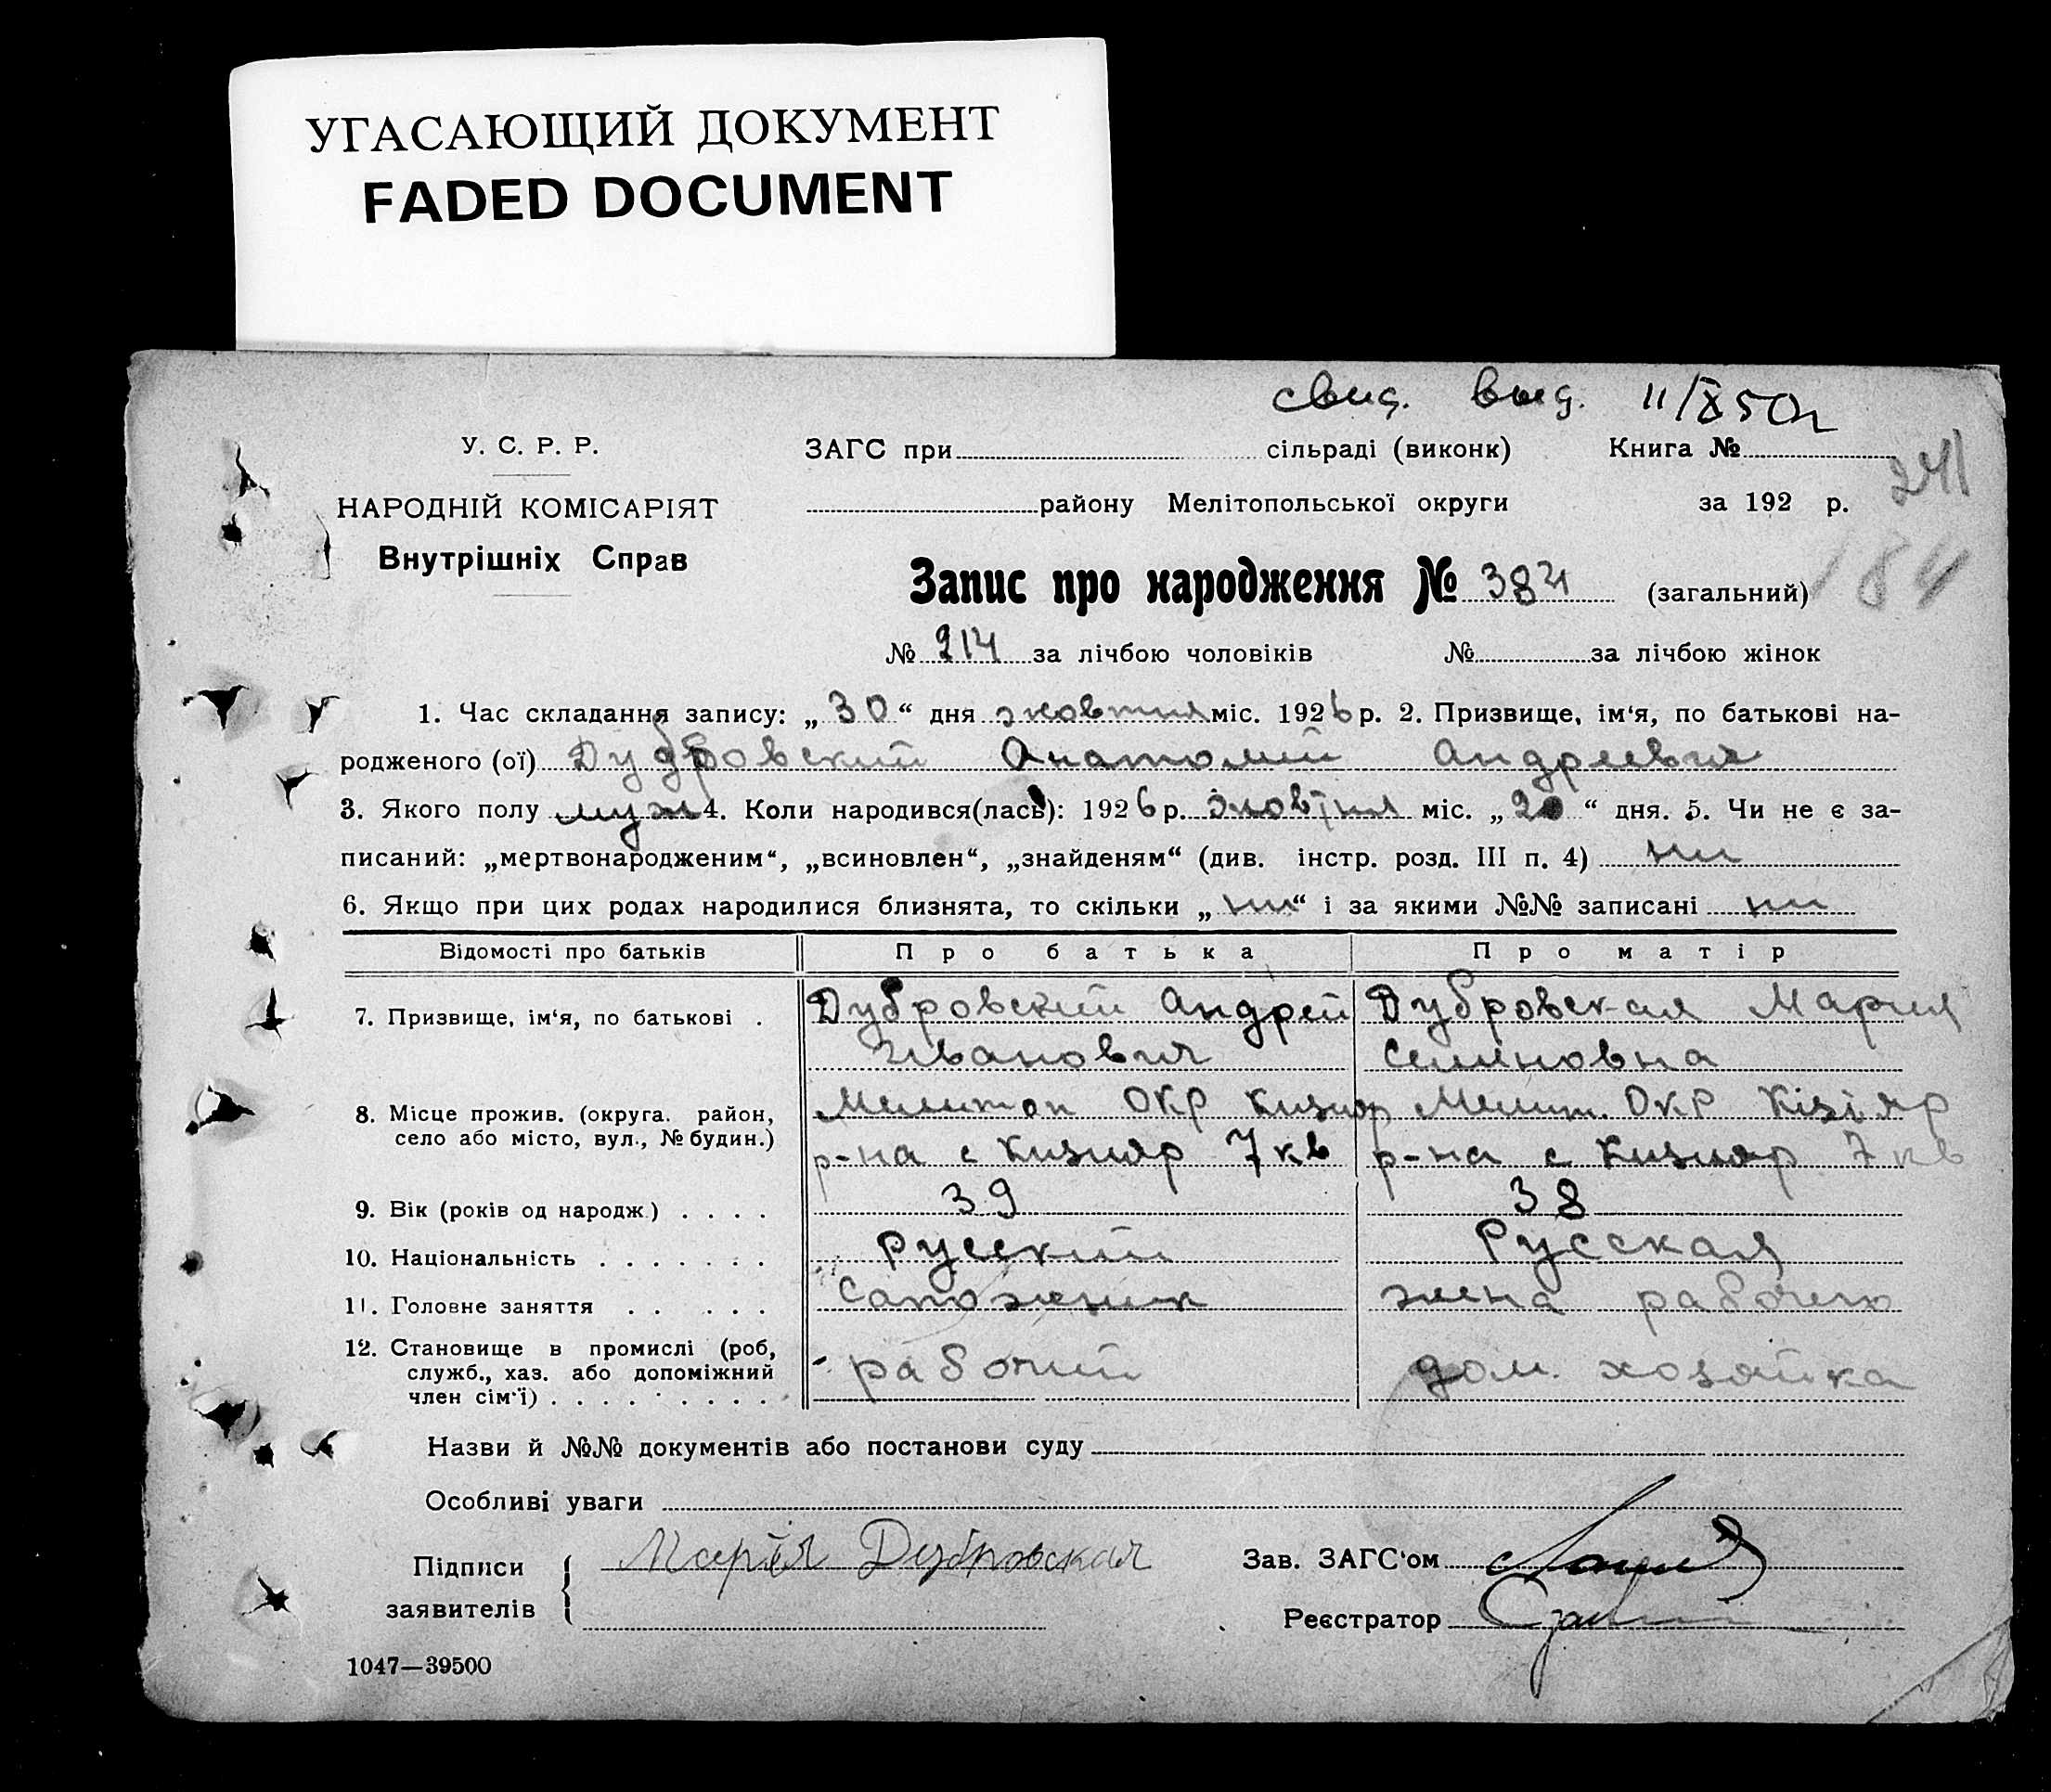 УГАСАЮЩИЙ ДОКУМЕНТ
FADED DOCUMENT
свид. выд. 11/X 50г
У. С. Р. Р.
ЗАГС при сільраді (виконк) Книга №
241
НАРОДНІЙ КОМІСАРІЯТ
району Мелітопольської округи за 192 р.
Внутрішніх Справ
Запис про народження № 384 (загальний)
184
№ 214 за лічбою чоловіків № за лічбою жінок
1. Час складання запису: „ 30 “ дня жовтня міс. 1926 р. 2. Призвище, ім‘я, по батькові на-
родженого (ої) Дубровский Анатолий Андреевич
3. Якого полу муж 4. Коли народився(лась): 1926 р. жовтня міс. „ 20 “ дня. 5. Чи не є за-
писаний: „мертвонародженим“, „всиновлен“, „знайденям“ (див. інстр. розд. III п. 4) ни
6. Якщо при цих родах народилися близнята, то скільки „ ни “ і за якими №№ записані ни
Відомості про батьків Про батька Про матір
7. Призвище, ім‘я, по батькові . Дубровский Андрей Дубровская Мария
Иванович Семеновна
8. Місце прожив. (округа. район, Мелитоп ОКР Кизияр Мелит. ОКР Кізіяр
село або місто, вул., № будин.) р-на с Кизияр 7 кв р-на с Кизияр 7 кв
9. Вік (років од народж.) . . . . 39 38
10. Національність . . . . . . . Русский Русская
11. Головне заняття . . . . . Сапожник жена рабочего
12. Становище в промислі (роб, рабочий дом. хозяйка
служб., хаз. або допоміжний
член сім‘ї) . . . . . . . . .
Назви й №№ документів або постанови суду
Особливі уваги
Підписи Марія Дубровская Зав. ЗАГС‘ом
заявителів Реєстратор
1047—39500